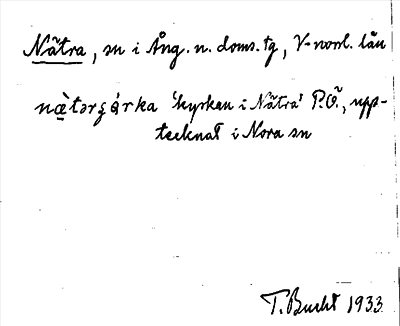 Nätra, sn i Ång. n. doms. tg, V-norrl. län
næ̀tərʂárka 'kyrkan i Nätra' P.Ö., upp-
tecknat i Nora sn
T. Bucht 1933